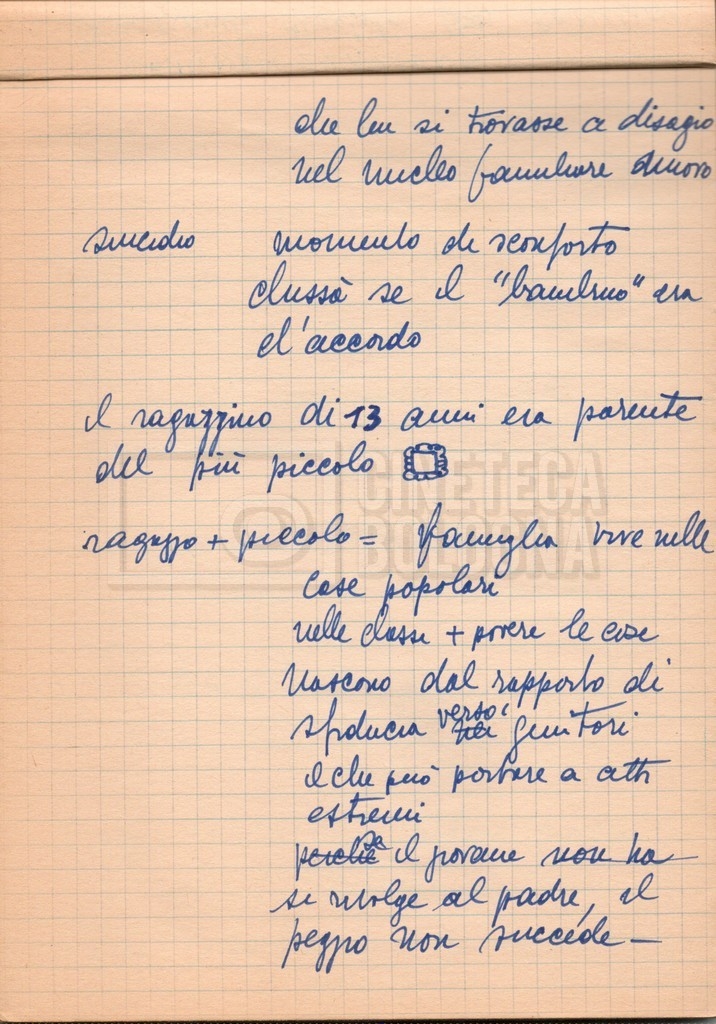 che lui si trovasse a disagio
nel nucleo familiare
suicidio momento di sconforto
chissà se il "bambino" era
d'accordo
il ragazzino di 13 anni era parente
del più piccolo
CINETECA
BOLOGNA
ragazzo + piccolo = famiglia vive nelle
case popolari
nelle classi + povere le cose
nascono dal rapporto di
sfiducia verso i genitori
il che può portare a atti
estremi
perchè se il giovane non ha
si rivolge al padre, il
peggio non succede —